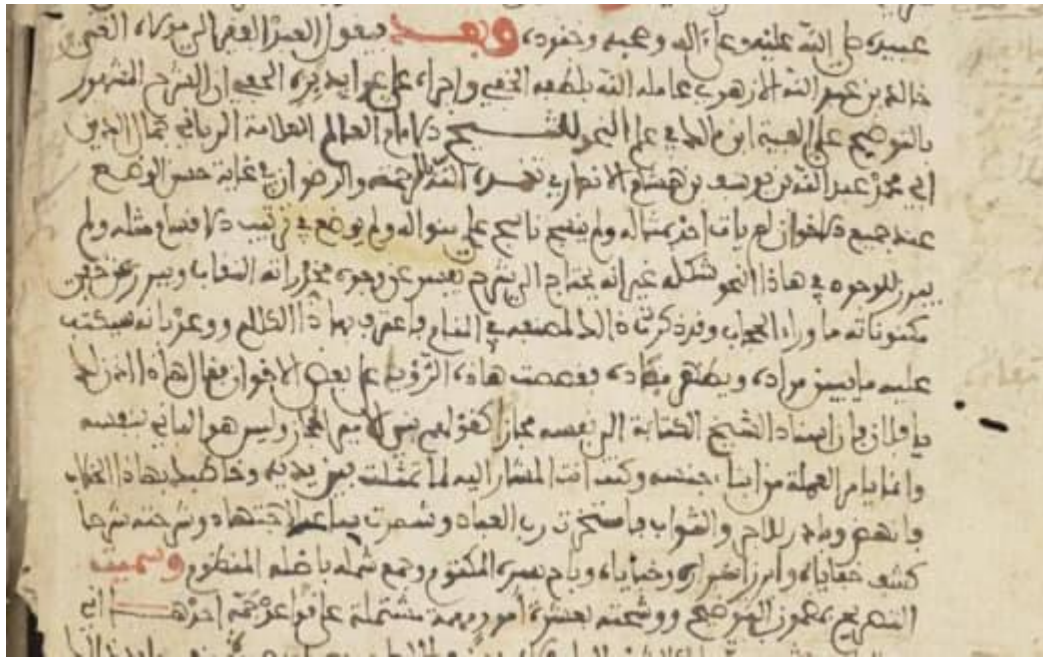 عبيده صلى الله عليه وعلى اله وصحبه وجنوده وبعد فيقول العبد الفقير الى مولاه الغني
خالد بن عبد الله الازهري عامله الله بلطفه الخفي واجراه على عوايد بره الحفي ان الشرح المشهور
بالتوضيح على الفية ابن مالك في علم النحو للشيخ الامام العالم العلامة الرباني جمال الدين
ابي محمد عبد الله بن يوسف بن هشام الانصاري تغمده الله بالرحمة والرضوان في غاية حسن الوضع
عند جميع الاخوان لم يات احد بمثاله ولم ينسج ناسج على منواله ولم يوضع في ترتيب الاقسام مثله ولم
يبرز للوجود في هاذا النحو شكله غير انه يحتاج الى شرح يسفر عن وجوه مخدراته النقاب ويبرز من خفي
مكنوناته ما وراء الحجاب وقد ذكرت ذالك لمصنفه في المنام فاعترف بهاذا الكلام ووعد بانه سيكتب
عليه ما يبين مراده ويظهر مفاده فقصصت هاذه الرؤيا على بعض الاخوان فقال هاذا اذن لك
يا فلان فان اسناد الشيخ الكتابة الى نفسه مجاز كقولهم بنى الامير وليس هو الباني بنفسه
وانما يامر العملة من ابناء جنسه وكنت انت المشار اليه لما تمثلت بين يديه وخاطبك بهاذا الخطاب
فانهض وبادر للاجر والثواب فاستخرت رب العباد وشمرت ساعد الاجتهاد وشرحته شرحا
كشف خفاياه وابرز اسراره وخباياه وباح بسره المكتوم وجمع شمله باصله المنظوم وسميته
التصريح بمضمون التوضيح ووشحته بعشرة امور مهمة مشتملة على فوائد جمة احدها اني